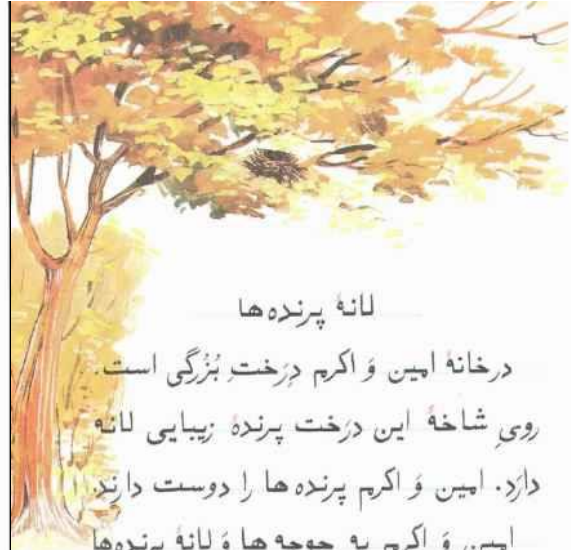 لانهٔ پرنده‌ها
درخانهٔ امین وَ اکرم دِرَختِ بُزُرگی است.
رویِ شاخهٔ این درَخت پرندهٔ زیبایی لانه
دارَد. امین وَ اکرم پرنده ها را دوست دارَند.
امین وَ اکرم به جوجه ها وَ لانهٔ پرنده‌ها